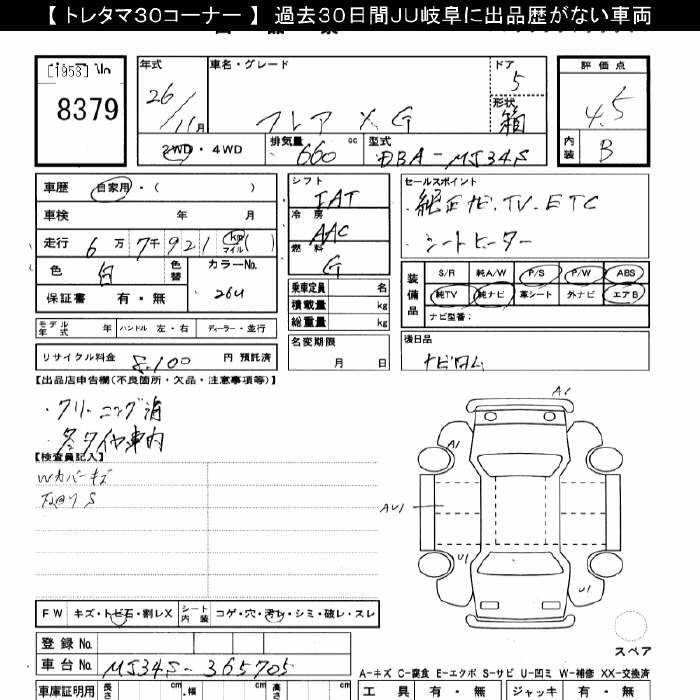 【トレタマ30コーナー】 過去30日間JU岐阜に出品歴がない車両
8379
年式 26/11月
車名・グレード フレア XG
ドア 5
形状 箱
2WD・4WD
排気量 660 cc
型式 DBA-MJ34S
評価点 4.5
内装 B
車歴 自家用・( )
車検 年 月
走行 6万7千921 km マイル ( )
色 白 色替
カラーNo. 26U
保証書 有・無
モデル年式 年 ハンドル 左・右 ディーラー・並行
リサイクル料金 8,100 円 預託済
シフト IAT
冷房 AAC
燃料 G
乗車定員 名
積載量 kg
総重量 kg
名変期限 月 日
セールスポイント
・純正ナビ.TV.ETC
・シートヒーター
装備品
S/R 純A/W P/S P/W ABS
純TV 純ナビ 革シート 外ナビ エアB
ナビ型番:
後日品
ナビROM
【出品店申告欄(不良箇所・欠品・注意事項等)】
・クリーニング済
・冬タイヤ車内
【検査員記入】
Wカバーキズ
A1
A1
AU1
U1
U1
スペア
FW キズ・トビ石・割レX
シート内装 コゲ・穴・汚レ・シミ・破レ・スレ
登録No.
車台No. MJ34S-365705
A-キズ C-腐食 E-エクボ S-サビ U-凹ミ W-補修 XX-交換済
車庫証明用 長さ cm 幅 cm 高さ cm
工具 有・無 ジャッキ 有・無